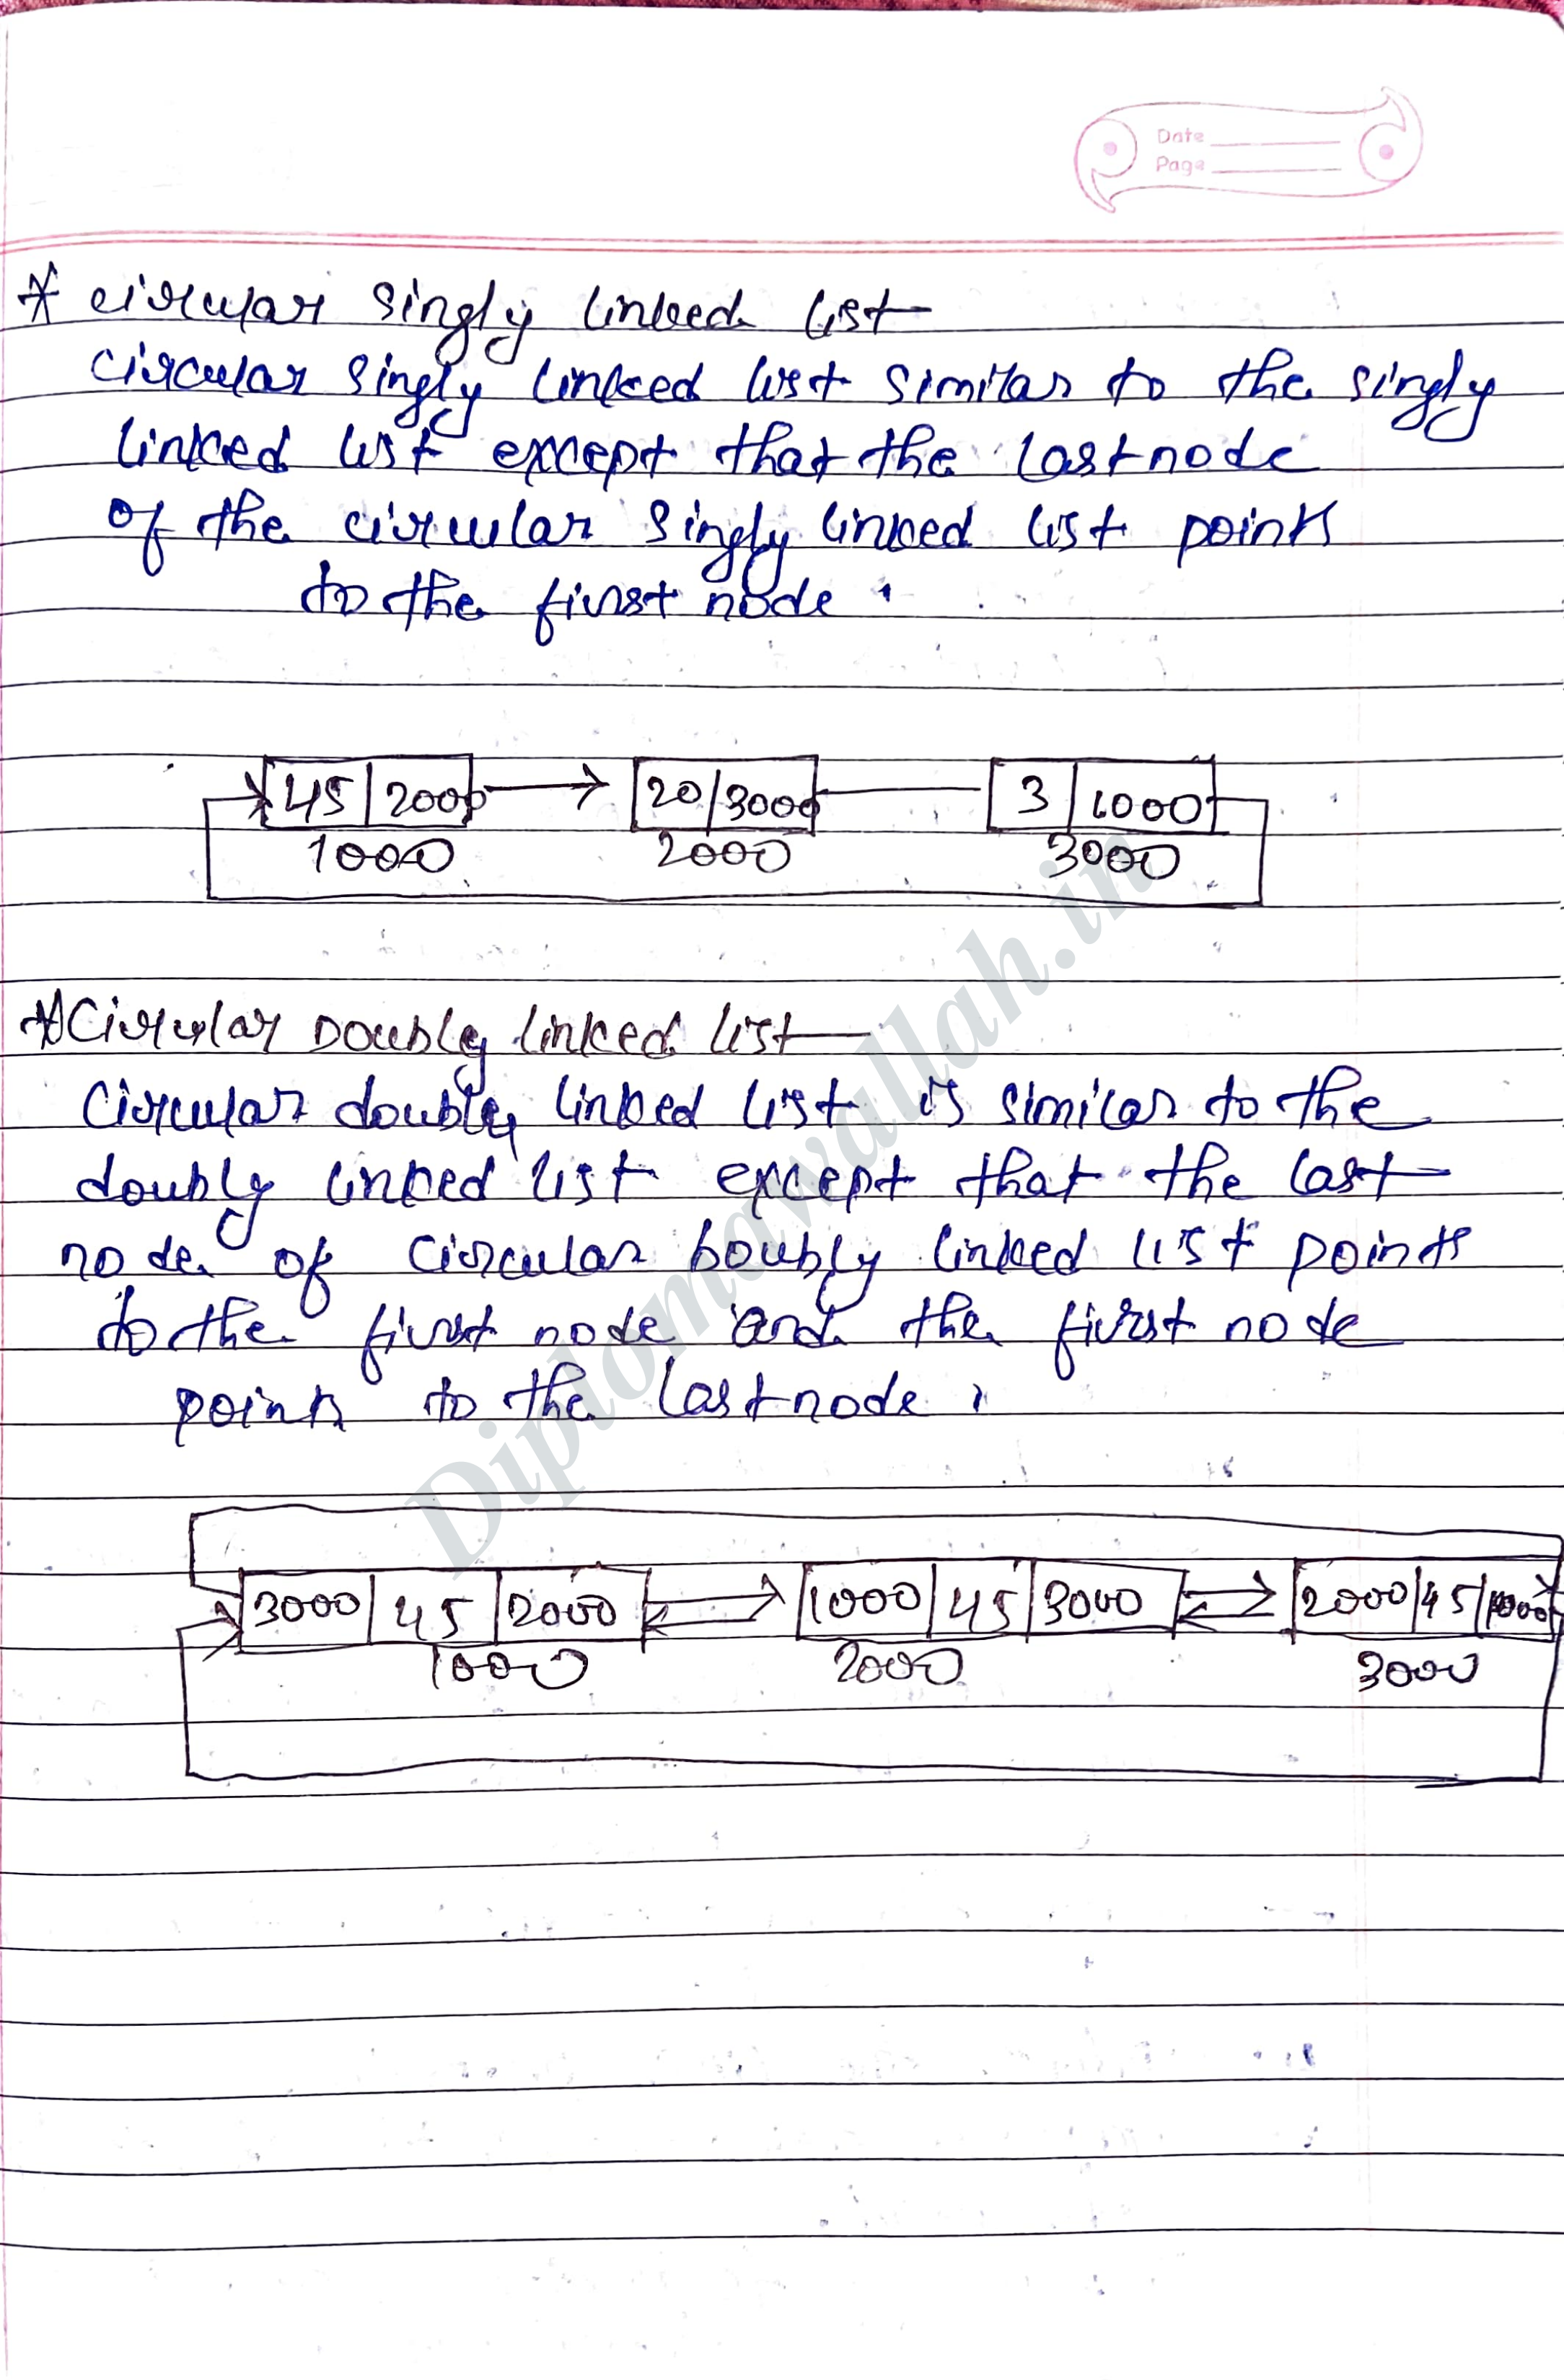 Date
Page
* circular singly linked list
circular singly linked list similar to the singly
linked list except that the last node
of the circular singly linked list points
to the first node.
45 | 2000 20 | 3000 3 | 1000
1000 2000 3000
* Circular Doubly linked list
Circular doubly linked list is similar to the
doubly linked list except that the last
node of circular boubly linked list points
to the first node and the first node
points to the last node.
3000 | 45 | 2000 1000 | 45 | 3000 2000 | 45 | 1000
1000 2000 3000
Diplomawallah.in